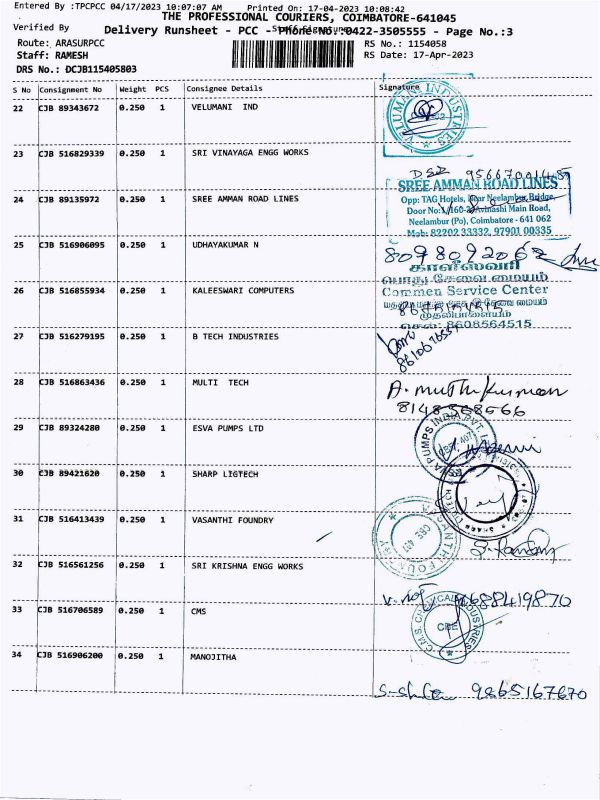 Entered By :TPCPCC 04/17/2023 10:07:07 AM Printed On: 17-04-2023 10:08:42
THE PROFESSIONAL COURIERS, COIMBATORE-641045
Verified By Staff Signature
Delivery Runsheet - PCC - Phone No.:0422-3505555 - Page No.:3
Route: ARASURPCC RS No.: 1154058
Staff: RAMESH RS Date: 17-Apr-2023
DRS No.: DCJB115405803
S No Consignment No Weight PCS Consignee Details Signature
22 CJB 89343672 0.250 1 VELUMANI IND
VELUMANI INDUSTRIES
23 CJB 516829339 0.250 1 SRI VINAYAGA ENGG WORKS
24 CJB 89135972 0.250 1 SREE AMMAN ROAD LINES
SREE AMMAN ROAD LINES
Opp: TAG Hotels, Near Neelambur Bridge,
Door No:1/160-3 Avinashi Main Road,
Neelambur (Po), Coimbatore - 641 062
Mob: 82202 33332, 97901 00335
25 CJB 516906095 0.250 1 UDHAYAKUMAR N
8098092062
காளீஸ்வரி
பொது சேவை மையம்
Common Service Center
முதலிபாளையம்
செல்: 8608564515
26 CJB 516855934 0.250 1 KALEESWARI COMPUTERS
27 CJB 516279195 0.250 1 B TECH INDUSTRIES
28 CJB 516863436 0.250 1 MULTI TECH
A. muthukumaran
8148568666
29 CJB 89324280 0.250 1 ESVA PUMPS LTD
ESVA PUMPS INDIA PVT. LTD
30 CJB 89421620 0.250 1 SHARP LIGTECH
31 CJB 516413439 0.250 1 VASANTHI FOUNDRY
VASANTHI FOUNDRY
CBE
32 CJB 516561256 0.250 1 SRI KRISHNA ENGG WORKS
9688419870
33 CJB 516706589 0.250 1 CMS
C.M.S. CHEMICAL INDUSTRIES
CBE
34 CJB 516906200 0.250 1 MANOJITHA
9865167670